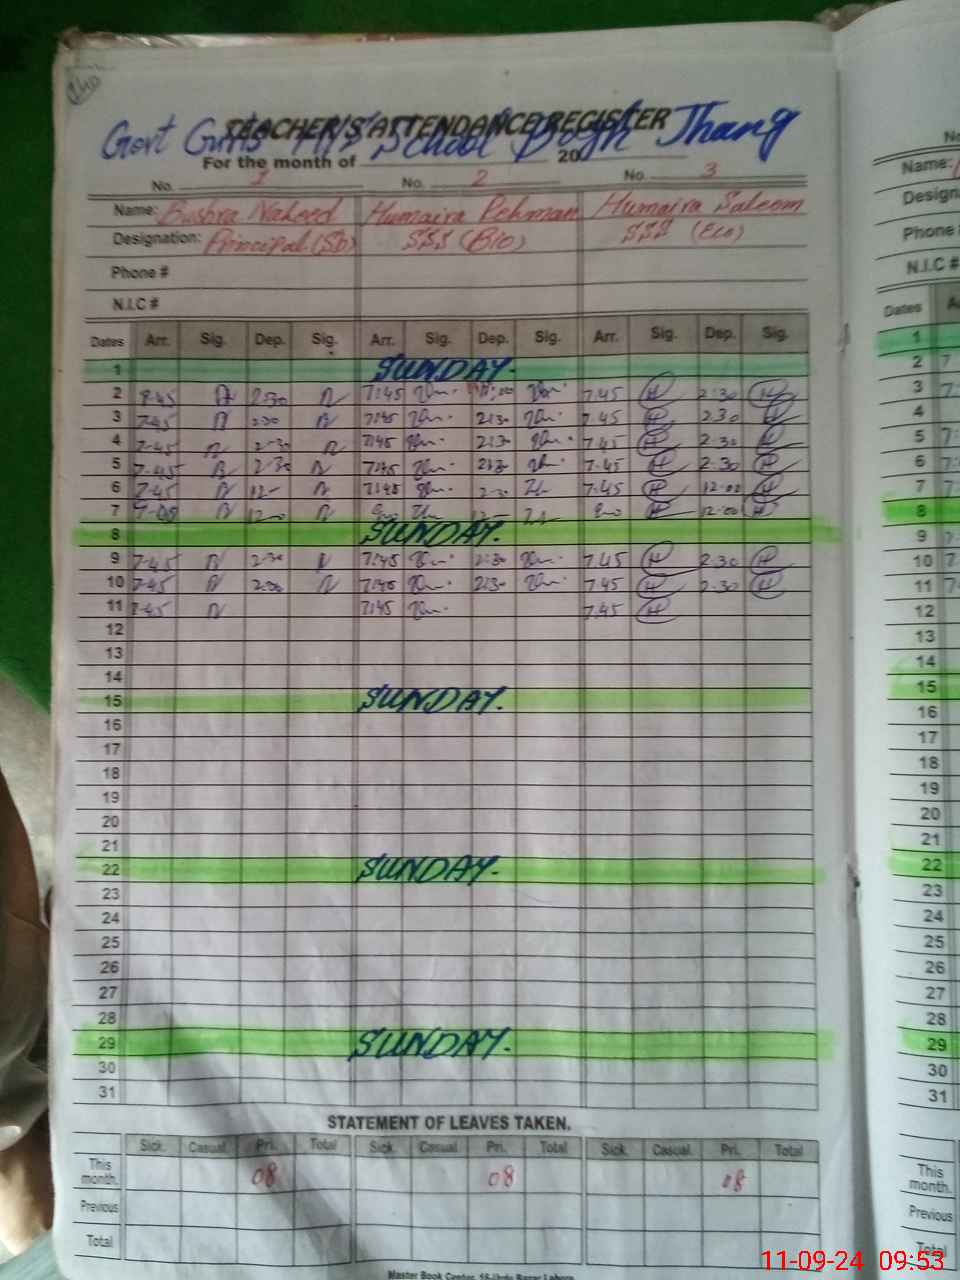 TEACHER'S ATTENDANCE REGISTER
Govt Girls School Jhang
For the month of 20
No. 1 No. 2 No. 3
Name: Bushra Naheed Humaira Rehman Humaira Saleem
Designation: Principal (Sb) SSS (Bio) SSS (Eco)
Phone #
N.I.C #
Dates Arr. Sig. Dep. Sig. Arr. Sig. Dep. Sig. Arr. Sig. Dep. Sig.
1 SUNDAY.
2 7:45 7.45 2:30
3 7-45 7:45 2:30 7.45 2.30
4 7-45 2-30 7:45 7.45 2.30
5 7-45 2-30 7:45 7.45 2.30
6 7-45 12- 7:45 2-30 7.45 12-00
7 12-00
8 SUNDAY.
9 7-45 2-30 7:45 2:30 7.45 2.30
10 7-45 7:45 2:30 7.45 2.30
11 7-45 7:45 7.45
12
13
14
15 SUNDAY.
16
17
18
19
20
21
22 SUNDAY.
23
24
25
26
27
28
29 SUNDAY.
30
31
STATEMENT OF LEAVES TAKEN.
Sick. Casual. Pri. Total Sick. Casual Pri. Total Sick. Casual. Pri. Total
This month. 08 08 08
Previous
Total
Master Book Center,
No
Name:
Phone
N.I.C #
Dates
1
2
3
4
5
6
7
8
9
10
11
12
13
14
15
16
17
18
19
20
21
22
23
24
25
26
27
28
29
30
31
This month.
Previous
Total
11-09-24 09:53